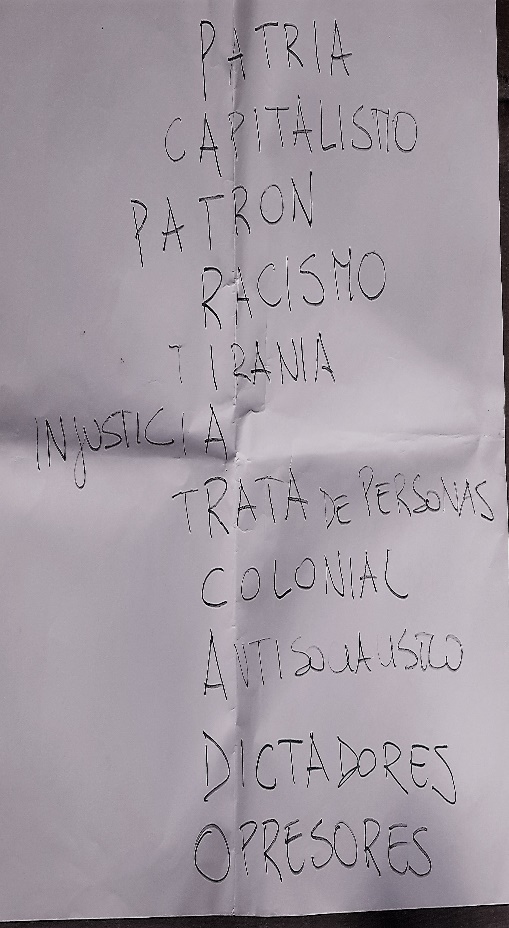 PATRIA
CAPITALISMO
PATRON
RACISMO
TIRANIA
INJUSTICIA
TRATA DE PERSONAS
COLONIAL
ANTISOCIALISTICO
DICTADORES
OPRESORES